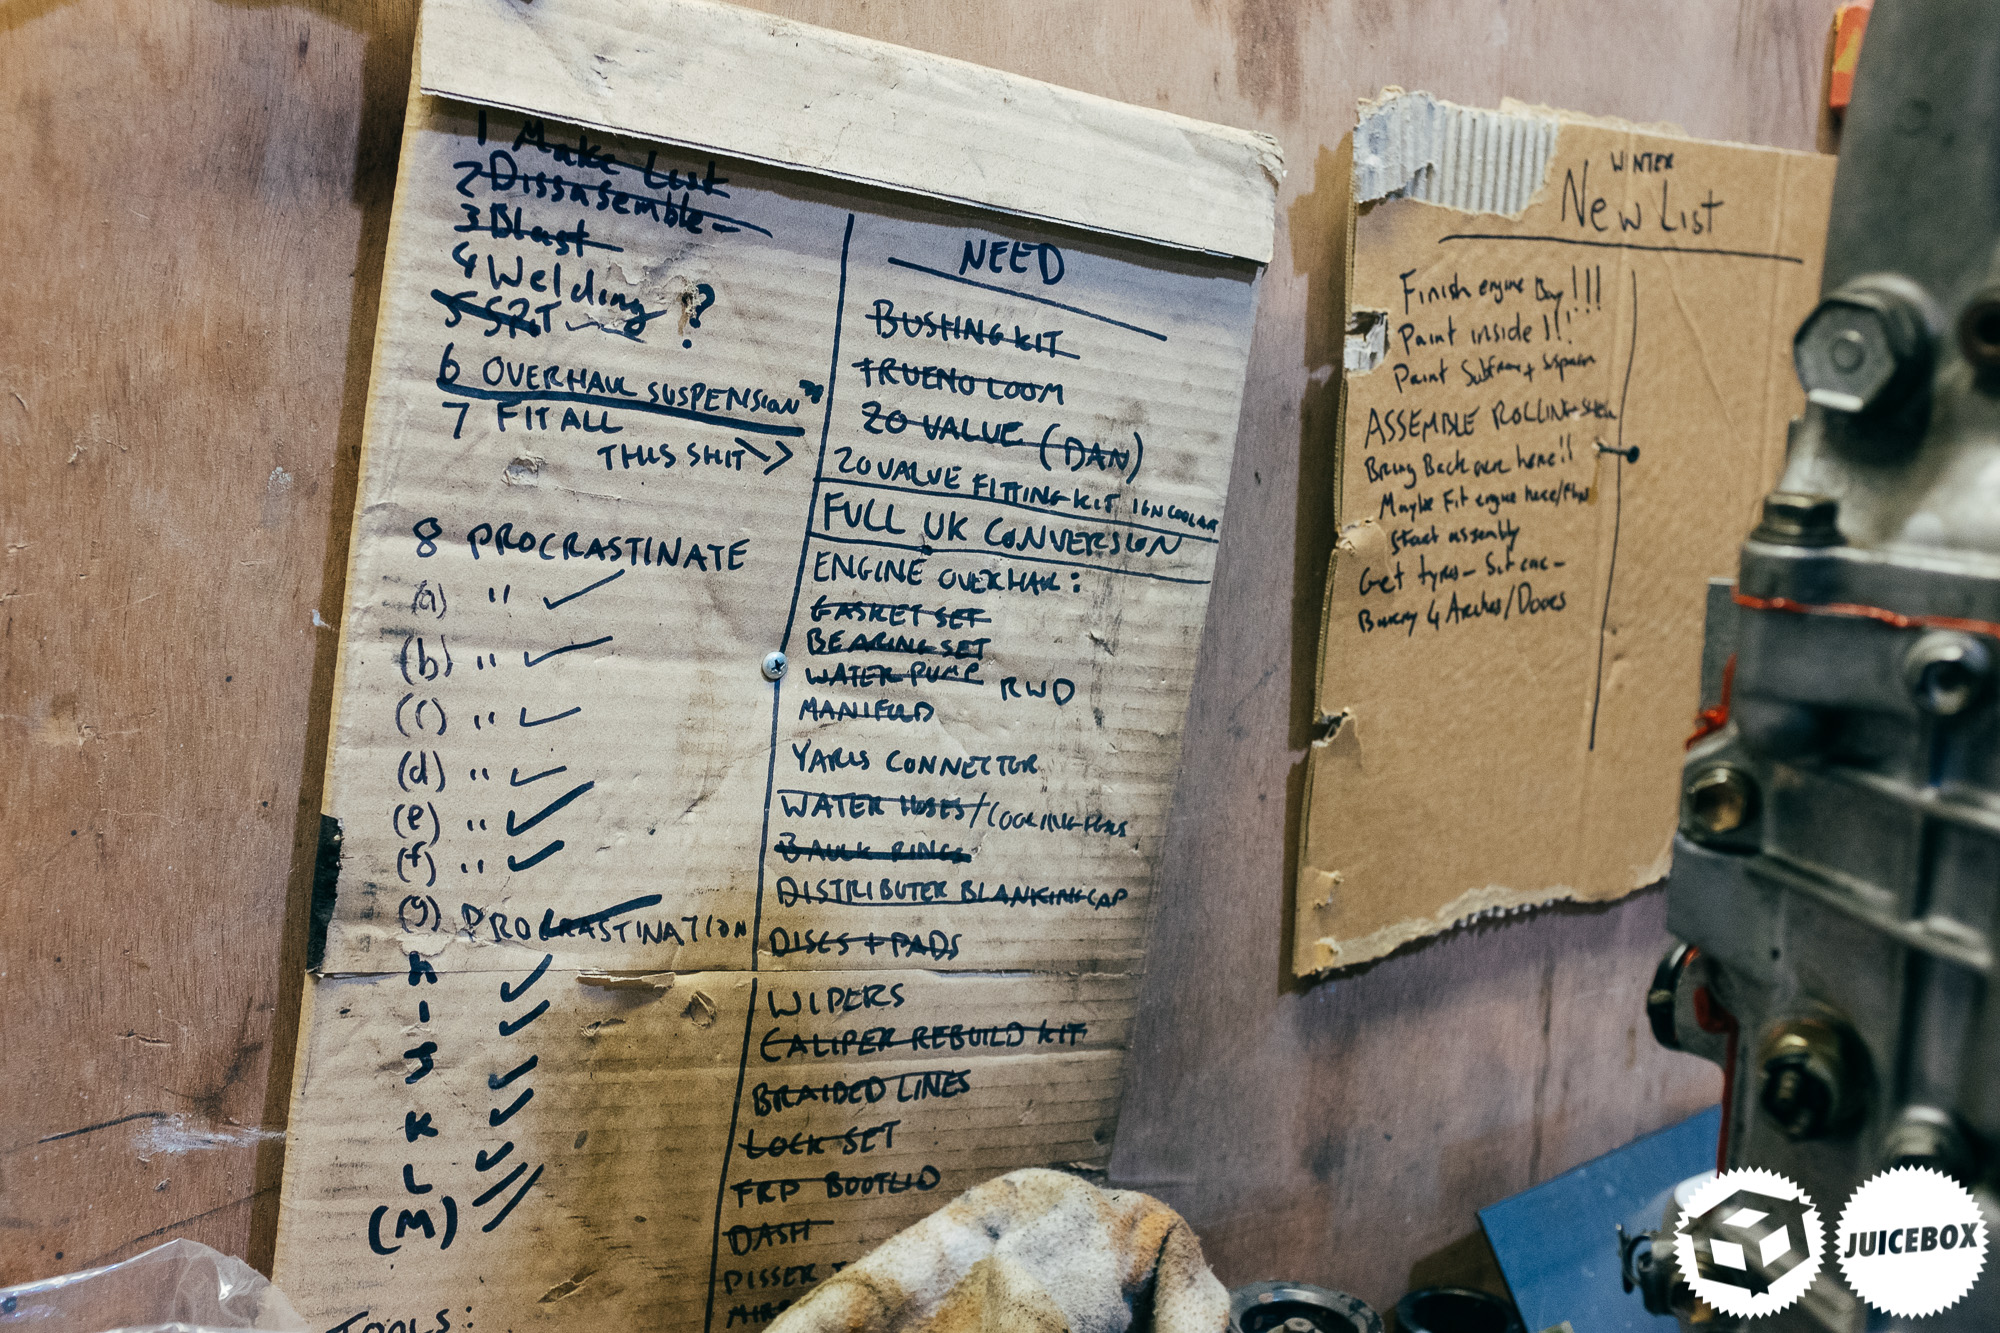 1 Make List
2 Dissasemble
3 Blast
4 Welding ?
5 SRT
6 OVERHAUL SUSPENSION
7 FIT ALL
THIS SHIT
8 PROCRASTINATE
(a) " ✓
(b) " ✓
(c) " ✓
(d) " ✓
(e) " ✓
(f) " ✓
(g) PROCRASTINATION
h ✓
I ✓
J ✓
K ✓
L ✓
(M)
TOOLS:
NEED
BUSHING KIT
TRUENO LOOM
20 VALUE (DAN)
20 VALVE FITTING KIT IGN COOLANT
FULL UK CONVERSION
ENGINE OVERHAUL:
GASKET SET
BEARING SET
WATER PUMP RWD
MANIFOLD
YARIS CONNECTOR
WATER HOSES / COOLING
BAULK RINGS
DISTRIBUTER BLANKING CAP
DISCS + PADS
WIPERS
CALIPER REBUILD KIT
BRAIDED LINES
LOCK SET
FRP BOOTLID
DASH
PISSER
WINTER
New List
Finish engine Bay!!!
Paint inside !!!
Paint Subframe + Suspension
ASSEMBLE ROLLING SHELL
Bring Back over here!!
Maybe Fit engine here/
Start assembly
Get tyres - Sit car -
4 Arches/Doors
JUICEBOX